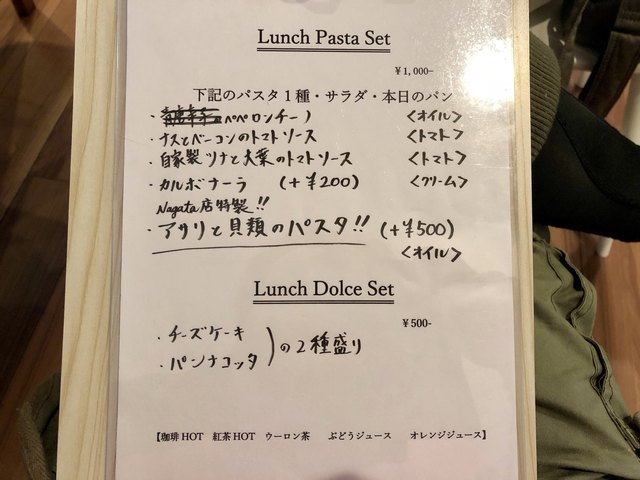 Lunch Pasta Set
¥1,000-
下記のパスタ1種・サラダ・本日のパン
・ペペロンチーノ <オイル>
・ナスとベーコンのトマトソース <トマト>
・自家製ツナと大葉のトマトソース <トマト>
・カルボナーラ (+¥200) <クリーム>
Nagata店特製!!
・アサリと貝類のパスタ!! (+¥500)
<オイル>
Lunch Dolce Set
¥500-
・チーズケーキ
・パンナコッタ )の2種盛り
【珈琲HOT 紅茶HOT ウーロン茶 ぶどうジュース オレンジジュース】